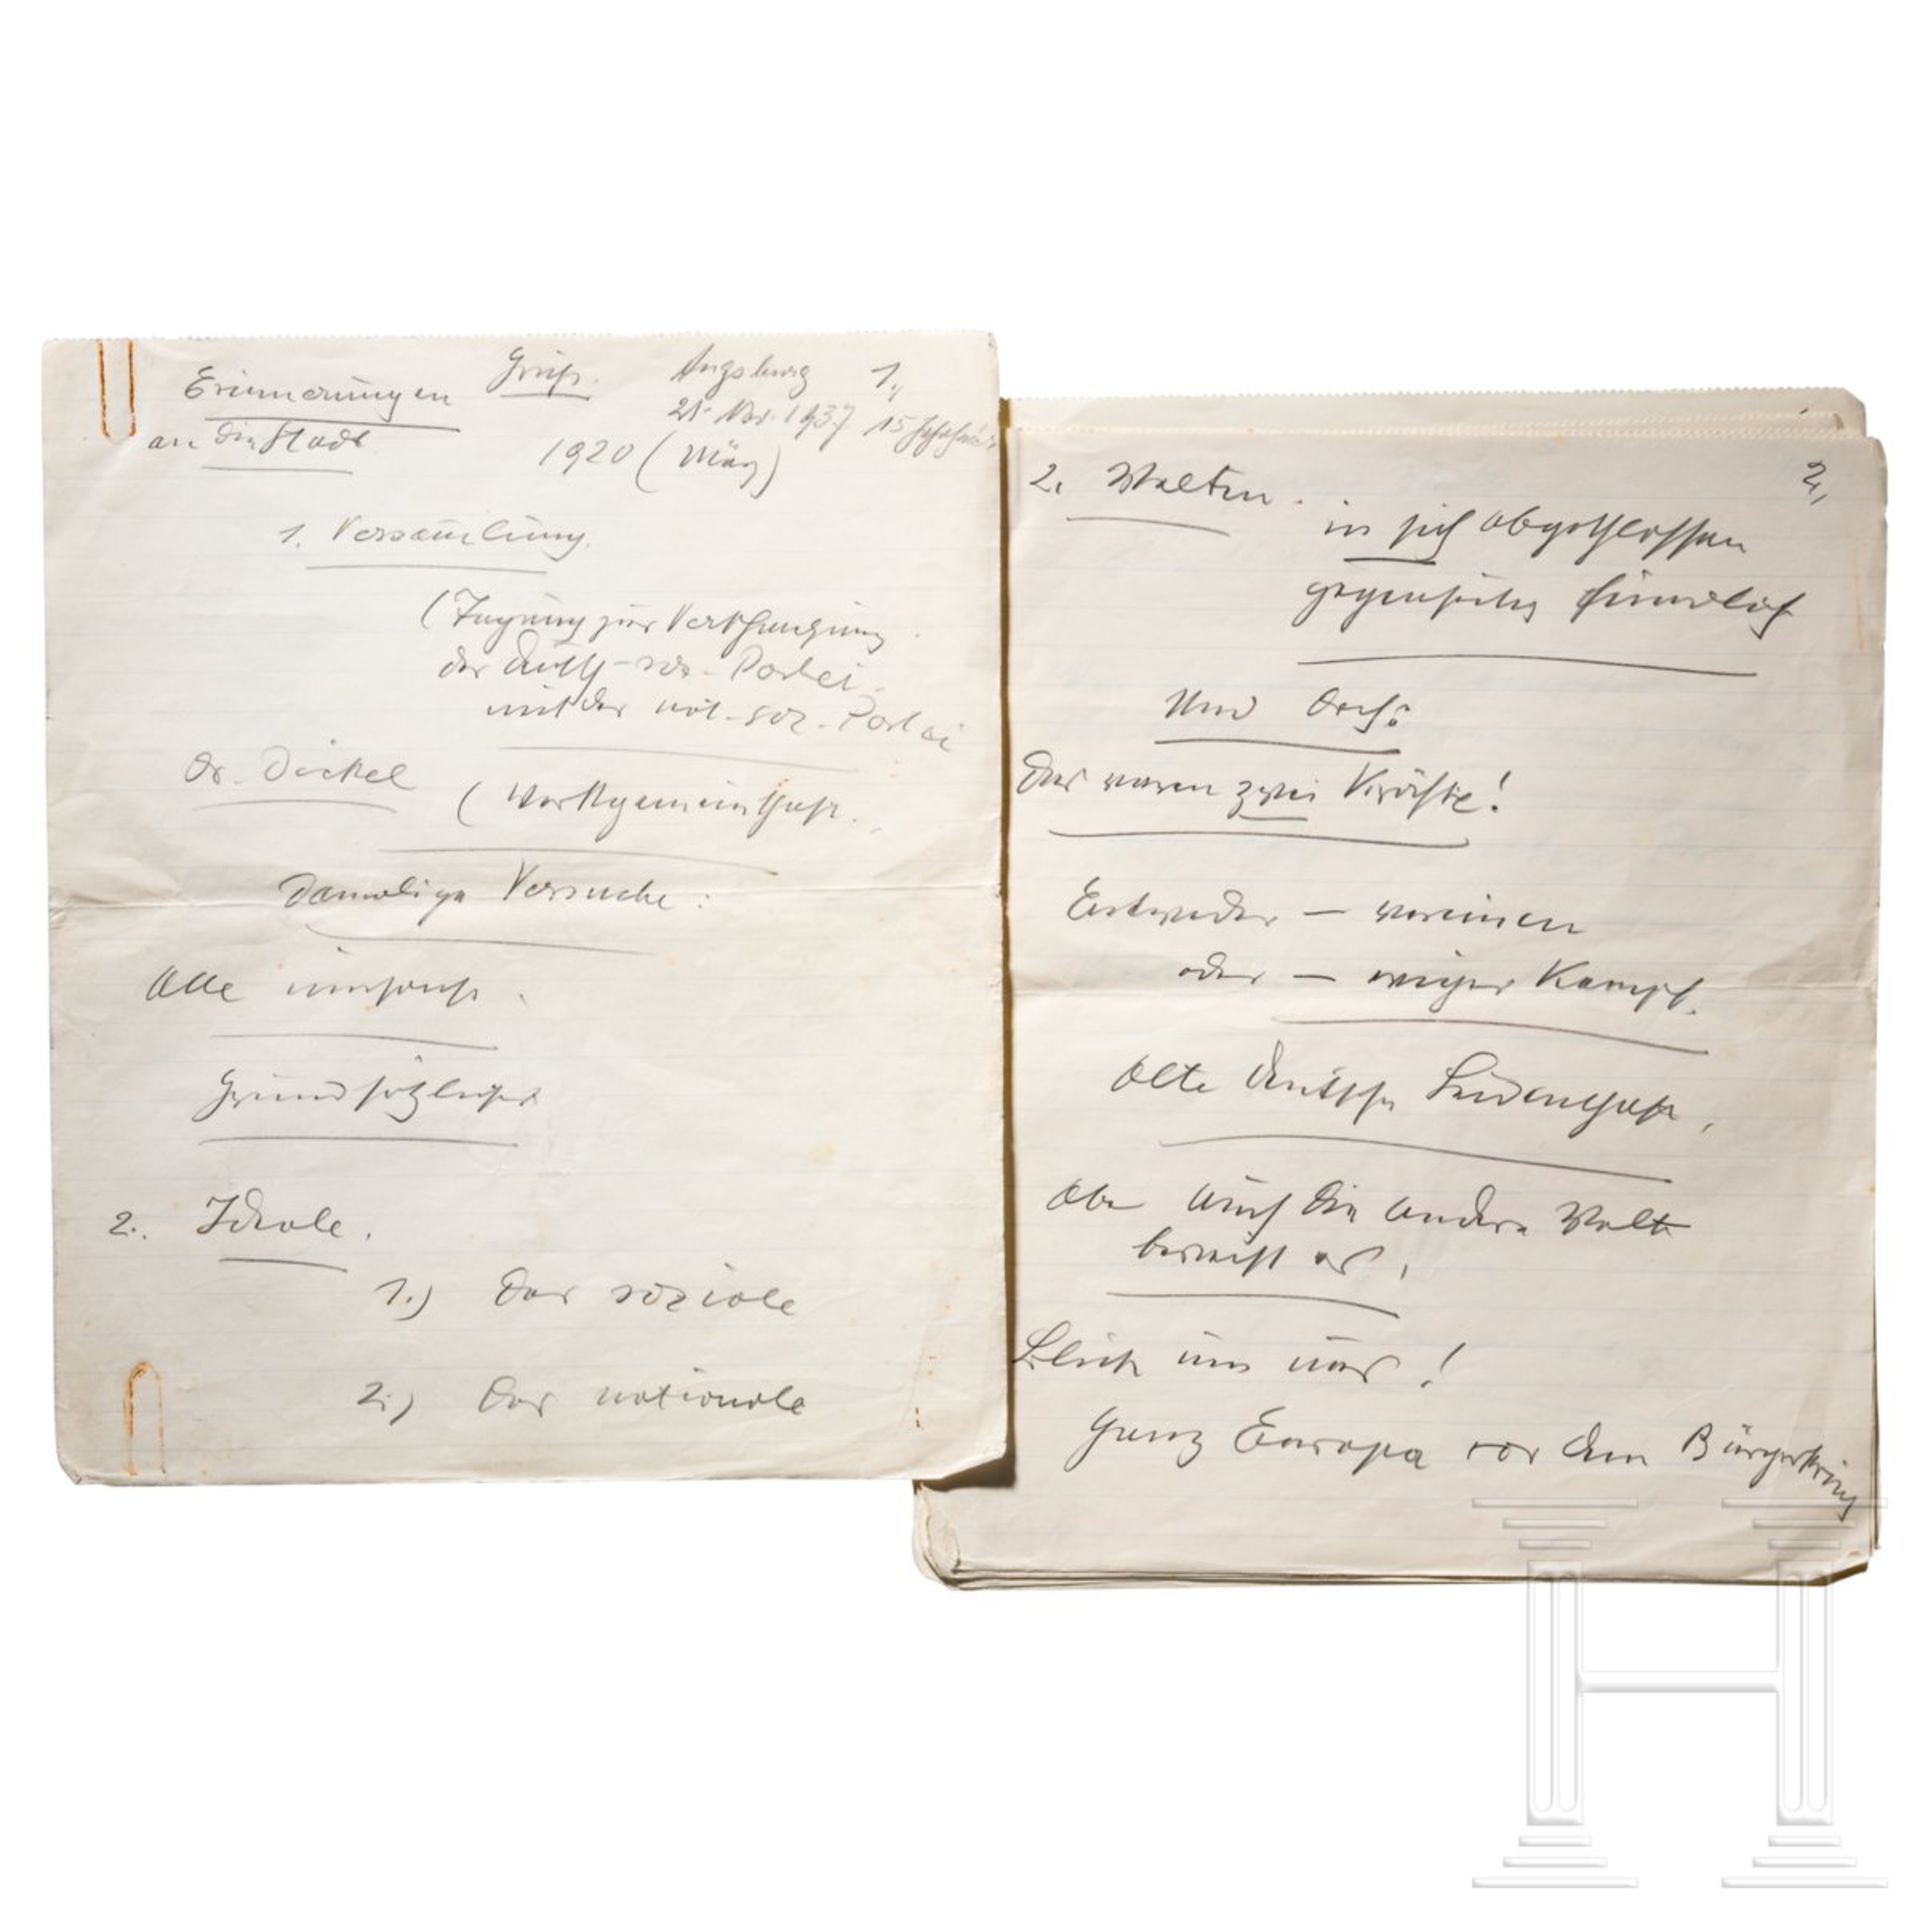 Erinnerungen Gruß. Augsburg 1.,
an die Stadt 21. Nov. 1937 15
1920 (März)
1. Versam̄lung.
(Tagung zur Verschmelzung
der deutsch-soz. Partei
mit der nat.-soz. Partei
Dr. Dickel (Werkgemeinschaft.
Damalige Versuche:
Alle umsonst.
Grundsätzliches
2. Ideale.
1.) Das soziale
2.) Das nationale
2. Welten. 2,
in sich abgeschlossen
gegenseitig feindlich
Und doch:
Das waren zwei Kräfte!
Entweder – vereinen
oder – ewiger Kampf.
Alte deutsche Leidenschaft,
Aber auch die andere Welt
beweist es,
Blick um uns!
Ganz Europa vor dem Bürgerkrieg